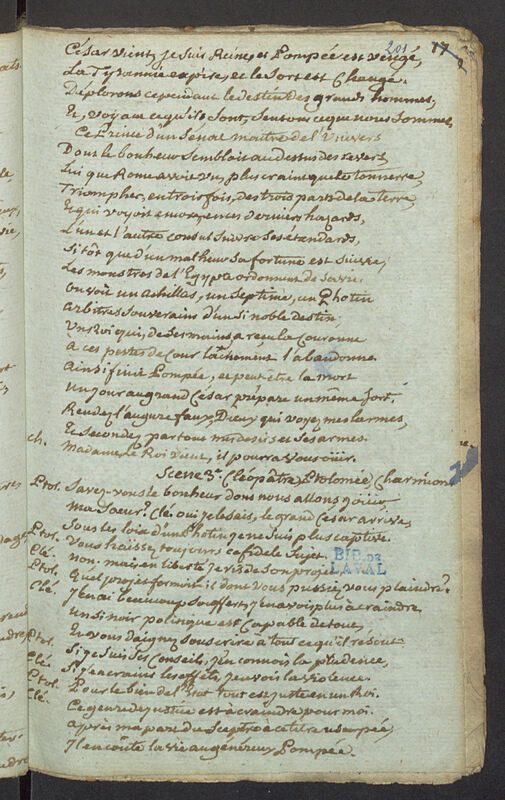 201 17
César vient, je suis Reine, et Pompée est vengé,
La Tyrannie expire, et le Sort est Changé.
Déplorons cependant le destin des grands hommes,
Et, voyant ce qu'ils sont, sentons ce que nous sommes,
Ce Prince d'un Senat maitre de l'Univers
Dont le bonheur sembloit au dessus des revers
Lui que Rome avoit vu, plus craint que le tonnerre,
Triompher, en trois fois, des trois parts de la terre,
Et qui voyoit encore en ces derniers hazards,
L'un et l'autre consul suivre ses étendards,
Si tôt que d'un malheur sa fortune est suivie,
Les monstres de l'Egypte ordonnent de sa vie.
On voit un Achillas, un Septime, un Photin
arbitres souverains d'un si noble destin.
Un Roi qui, de ses mains a reçu la Couronne
à ces pestes de Cour lâchement l'abandonne.
Ainsi finit Pompée, et peut être la mort
Un jour au grand César prépare un même sort.
Rendez l'augure faux, Dieux qui voyez mes larmes,
Et secondez partout mes desirs et ses armes.
ch. Madame, le Roi vient, il pourra vous ouir.
Scene 3e. Cléopâtre, Ptolomée, Charmion
Ptol. Savez-vous le bonheur dont nous allons jouir,
Ma Soeur? Clé. oui je le sais, le grand César arrive,
Sous les loix d'un Photin je ne suis plus captive.
Ptol. Vous haïssez toujours ce fidele Sujet.
Clé. non, mais en liberté je ris de son projet.
Ptol. Quel projet formoit il dont vous pussiez vous plaindre?
Clé. J'en ai beaucoup souffert, j'en avois plus à craindre
Un si noir politique est capable de tout,
Et vous daignez souscrire à tout ce qu'il résout.
Ptol. Si je suis ses conseils, j'en connois la prudence,
Clé. Si j'en crains les effets, j'en vois la violence.
Ptol. Pour le bien de l'Etat tout est juste en un Roi.
Clé. Ce genre de justice est à craindre pour moi.
Après ma part du Sceptre à ce titre usurpée,
Il en coûte la vie au généreux Pompée.
BIB. DE
LAVAL